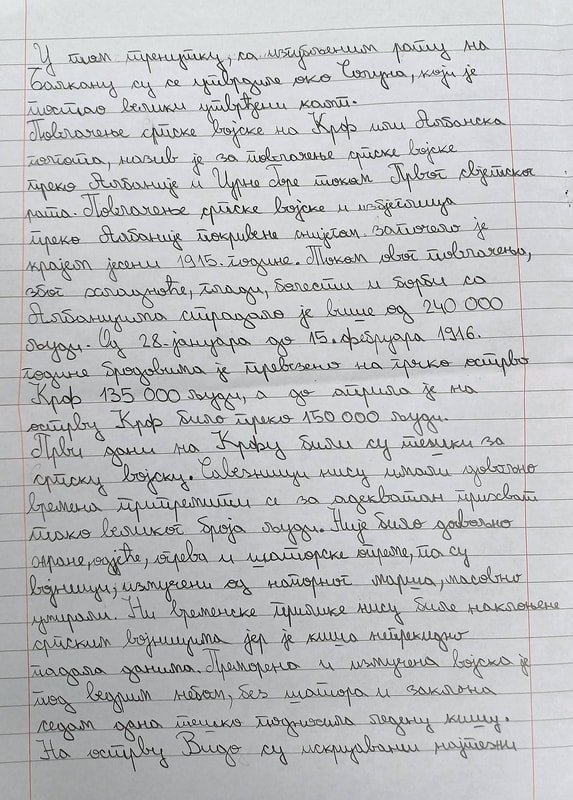 У том тренутку, са изгубљеним рату на
Балкану су се утврдиле око Солуна, који је
постао велики утврђени камп.
Повлачење српске војске на Крф или Албанска
голгота, назив је за повлачење српске војске
преко Албаније и Црне Горе током Првог свјетског
рата. Повлачење српске војске и избјеглица
преко Албаније покривене снијегом започело је
крајем јесени 1915. године. Током овог повлачења,
због хладноће, глади, болести и борби са
Албанцима страдало је више од 240 000
људи. Од 28. јануара до 15. фебруара 1916.
године бродовима је превезено на грчко острво
Крф 135 000 људи, а до априла је на
острву Крф било преко 150 000 људи.
Први дани на Крфу били су тешки за
српску војску. Савезници нису имали довољно
времена припремити се за адекватан прихват
тако великог броја људи. Није било довољно
хране, одјеће, огрева и шаторске опреме, па су
војници, измучени од напорног марша, масовно
умирали. Ни временске прилике нису биле наклоњене
српским војницима јер је киша непрекидно
падала данима. Преморена и измучена војска је
под ведрим небом, без шатора и заклона
седам дана тешко подносила ледену кишу.
На острву Видо су искрцавани најтежи